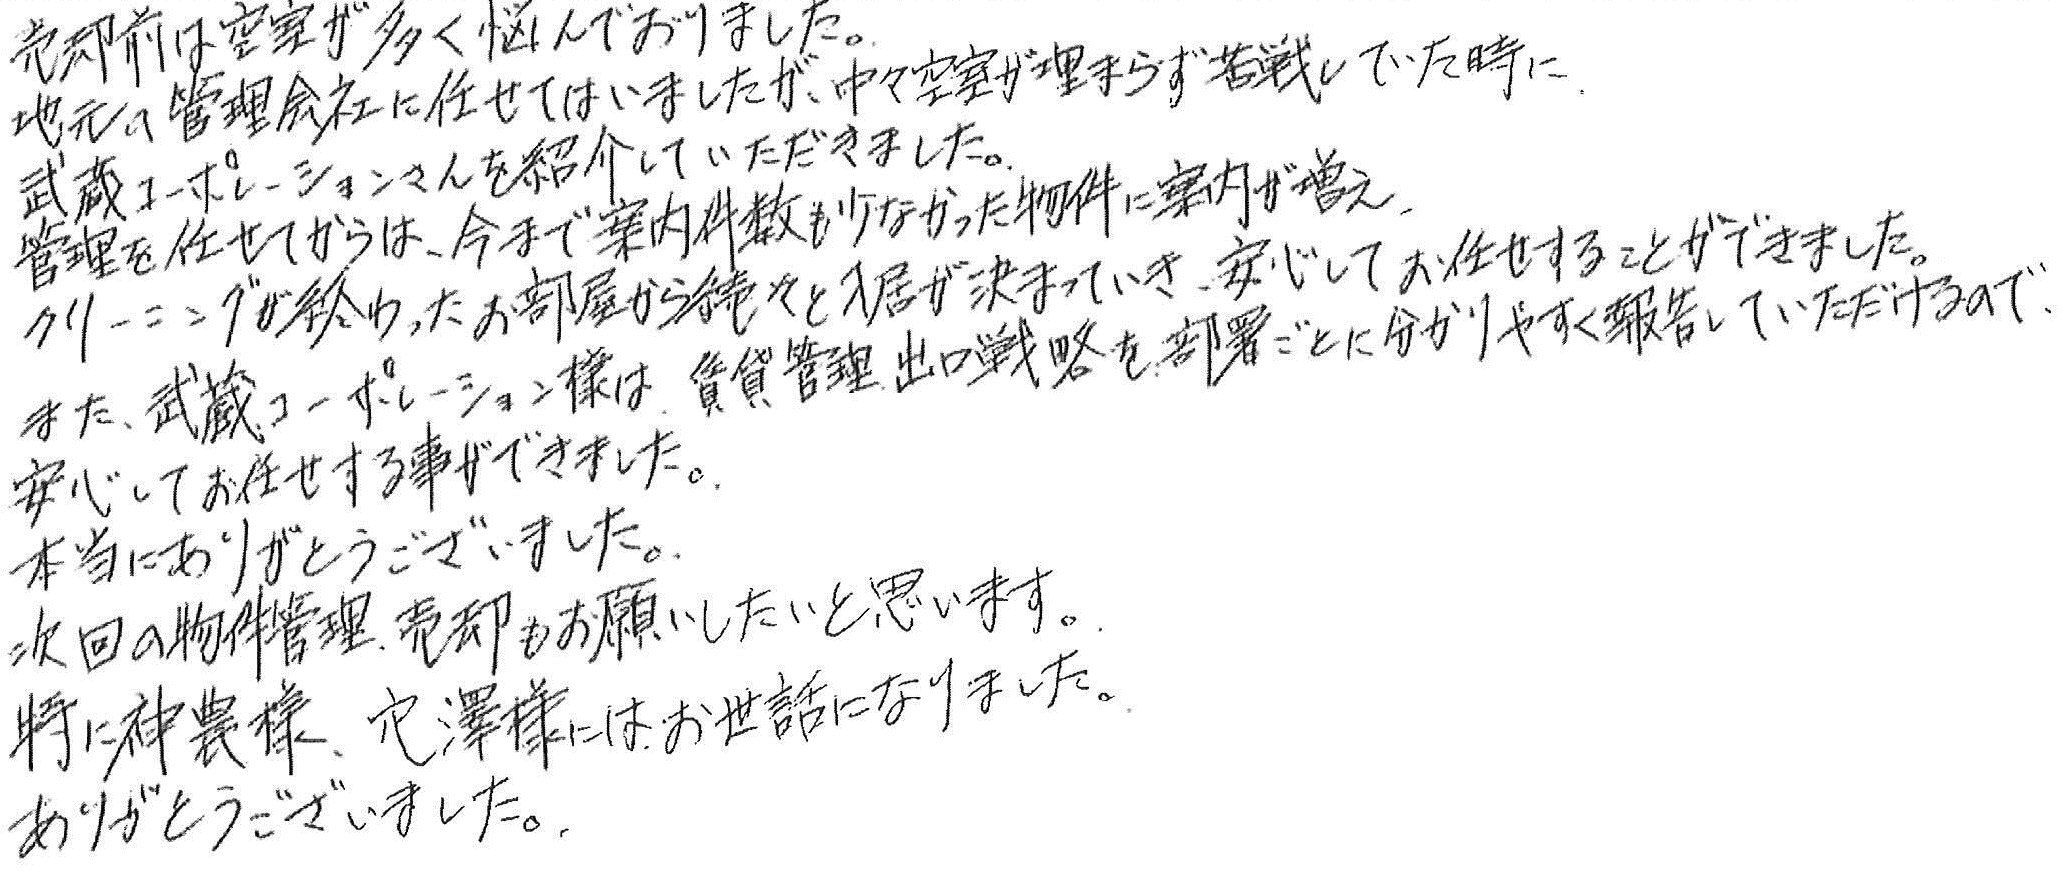 売却前は空室が多く悩んでおりました。
地元の管理会社に任せてはいましたが、中々空室が埋まらず苦戦していた時に
武蔵コーポレーションさんを紹介していただきました。
管理を任せてからは、今まで案内件数も少なかった物件に案内が増え、
クリーニングが終わったお部屋から続々と入居が決まっていき、安心してお任せすることができました。
また、武蔵コーポレーション様は、賃貸管理、出口戦略を、部署ごとに分かりやすく報告していただけるので、
安心してお任せする事ができました。
本当にありがとうございました。
次回の物件管理、売却もお願いしたいと思います。
特に神農様、穴澤様にはお世話になりました。
ありがとうございました。